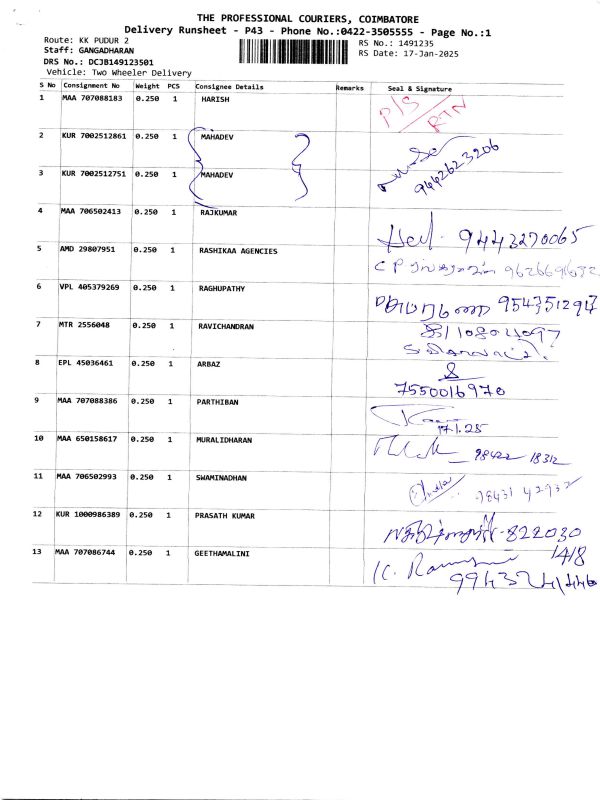 THE PROFESSIONAL COURIERS, COIMBATORE
Delivery Runsheet - P43 - Phone No.:0422-3505555 - Page No.:1
Route: KK PUDUR 2
RS No.: 1491235
Staff: GANGADHARAN
RS Date: 17-Jan-2025
DRS No.: DCJB149123501
Vehicle: Two Wheeler Delivery
S No Consignment No Weight PCS Consignee Details Remarks Seal & Signature
1 MAA 707088183 0.250 1 HARISH P/S RTN
2 KUR 7002512861 0.250 1 MAHADEV
3 KUR 7002512751 0.250 1 MAHADEV 9442623206
4 MAA 706502413 0.250 1 RAJKUMAR 9443270065
5 AMD 29807951 0.250 1 RASHIKAA AGENCIES CP
6 VPL 405379269 0.250 1 RAGHUPATHY
7 MTR 2556048 0.250 1 RAVICHANDRAN
8 EPL 45036461 0.250 1 ARBAZ 7550016970
9 MAA 707088386 0.250 1 PARTHIBAN 17.1.25
10 MAA 650158617 0.250 1 MURALIDHARAN 98422 18312
11 MAA 706502993 0.250 1 SWAMINADHAN 98431 42932
12 KUR 1000986389 0.250 1 PRASATH KUMAR 822030
1418
13 MAA 707086744 0.250 1 GEETHAMALINI